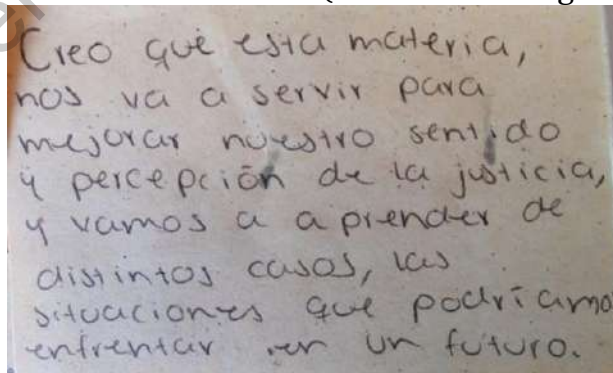 Creo que esta materia,
nos va a servir para
mejorar nuestro sentido
y percepción de la justicia,
y vamos a aprender de
distintos casos, las
situaciones que podríamo
enfrentar en un futuro.